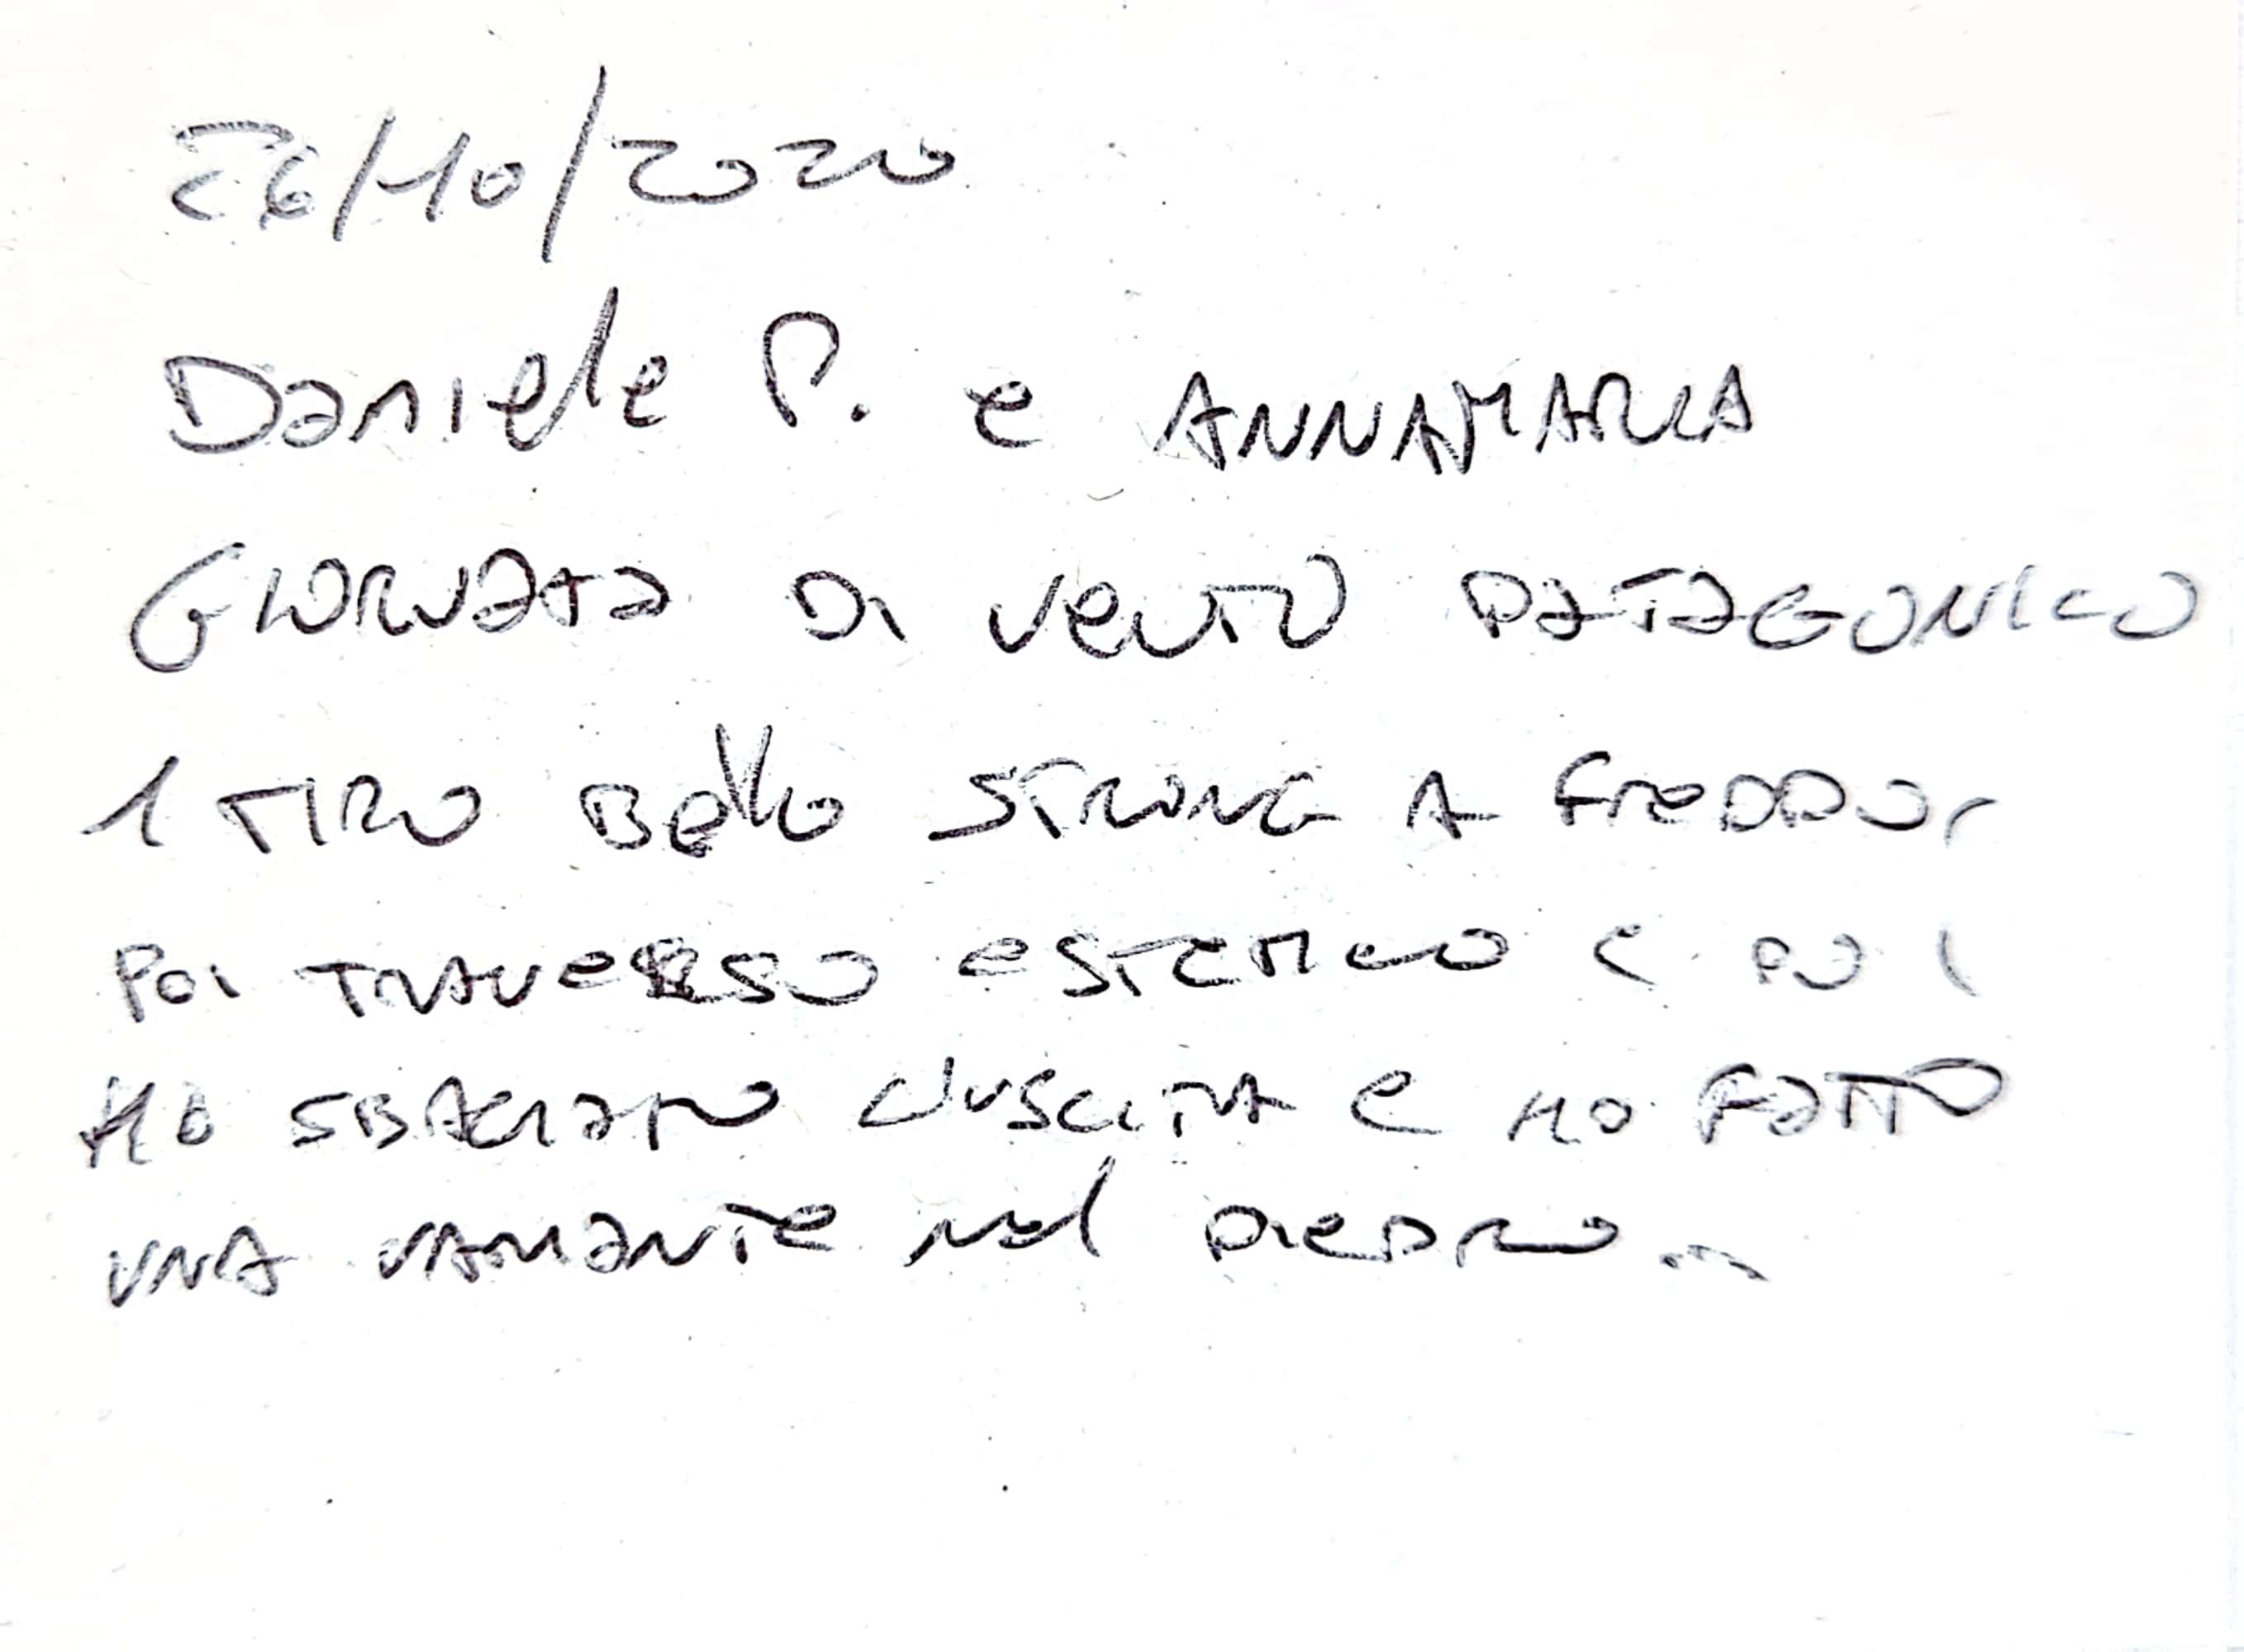 26/10/2020
Daniele P. e ANNAMARIA
GIORNATA DI VENTO PATAGONICO
1 TIRO Bello STRONG A FREDDO,
POI TRAVERSO ESTETICO E POI
HO SBAGLIATO l'USCITA E HO FATTO
UNA VARIANTE nel DIEDRO...